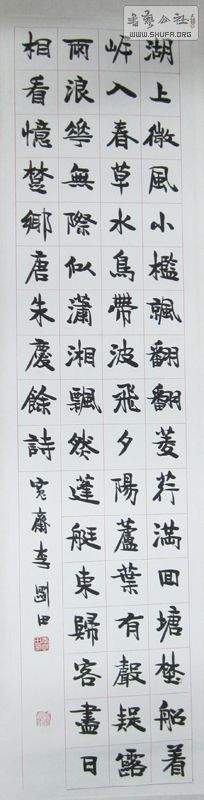 湖上微風小檻翻翻菱荇滿回塘埜船着
岸入春草水鳥帶波飛夕陽蘆葉有聲疑露
雨浪華無際似瀟湘飄然蓬艇東歸客盡日
相看憶楚鄉唐朱慶餘詩
寬齋李剛田
WWW.SHUFA.ORG